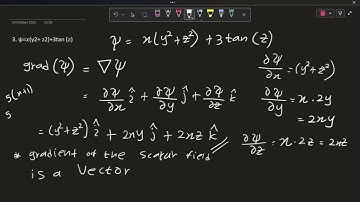 14 October 2023 12:30
3. ψ=x(y2+ z2)+3tan (z)
ψ = x(y²+z²) +3tan(z)
grad(ψ) = ∇ψ
∂ψ/∂x = (y²+z²)
= ∂ψ/∂x î + ∂ψ/∂y ĵ + ∂ψ/∂z k̂
∂ψ/∂y = x·2y
= 2xy
5(x+1)
5
= (y²+z²) î + 2xy ĵ + 2xz k̂
∂ψ/∂z = x·2z = 2xz
* gradient of the scalar field
is a vector